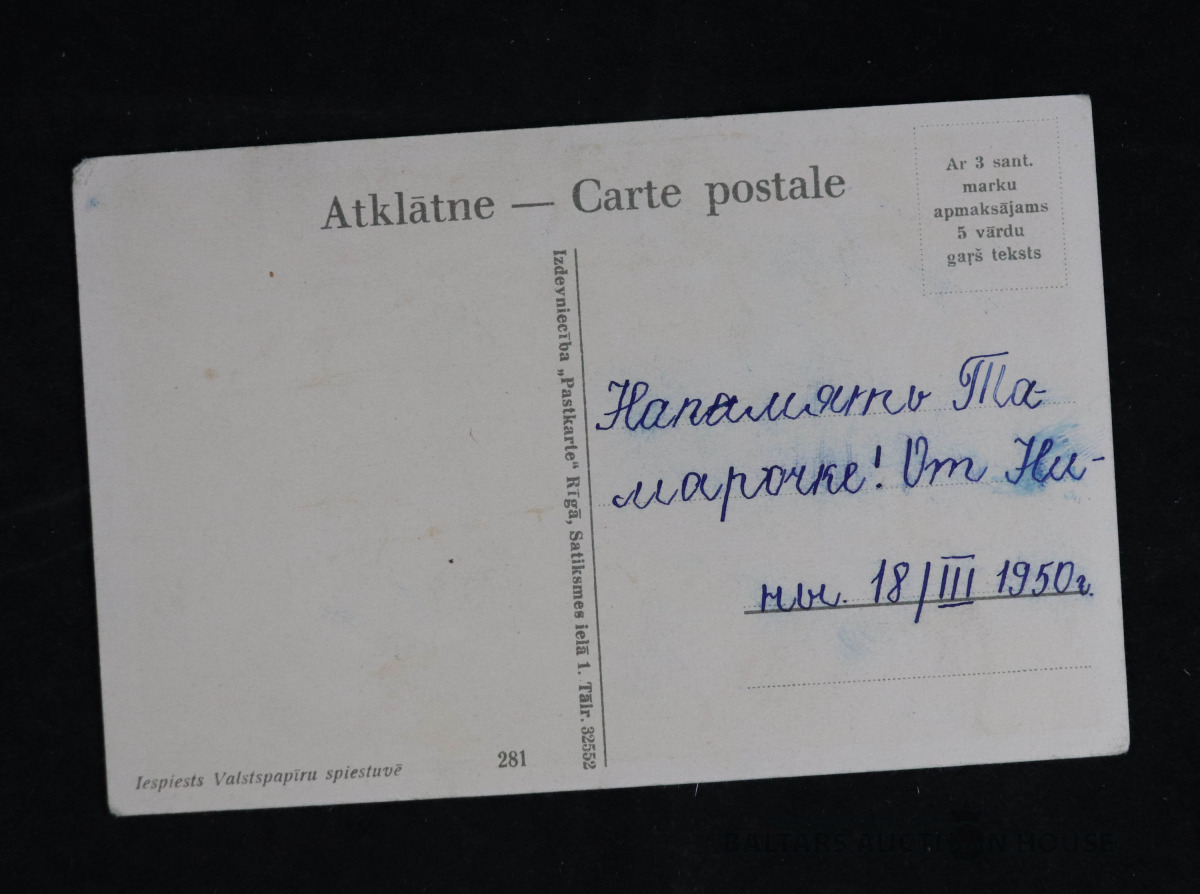 Atklātne — Carte postale
Ar 3 sant.
marku
apmaksājams
5 vārdu
gaŗš teksts
Izdevniecība „Pastkarte“ Rīgā, Satiksmes ielā 1. Tālr. 32552
Напамять Та-
марочке! От Ни-
ны. 18/III 1950г.
281
Iespiests Valstspapīru spiestuvē
BALTARS AUCTION HOUSE